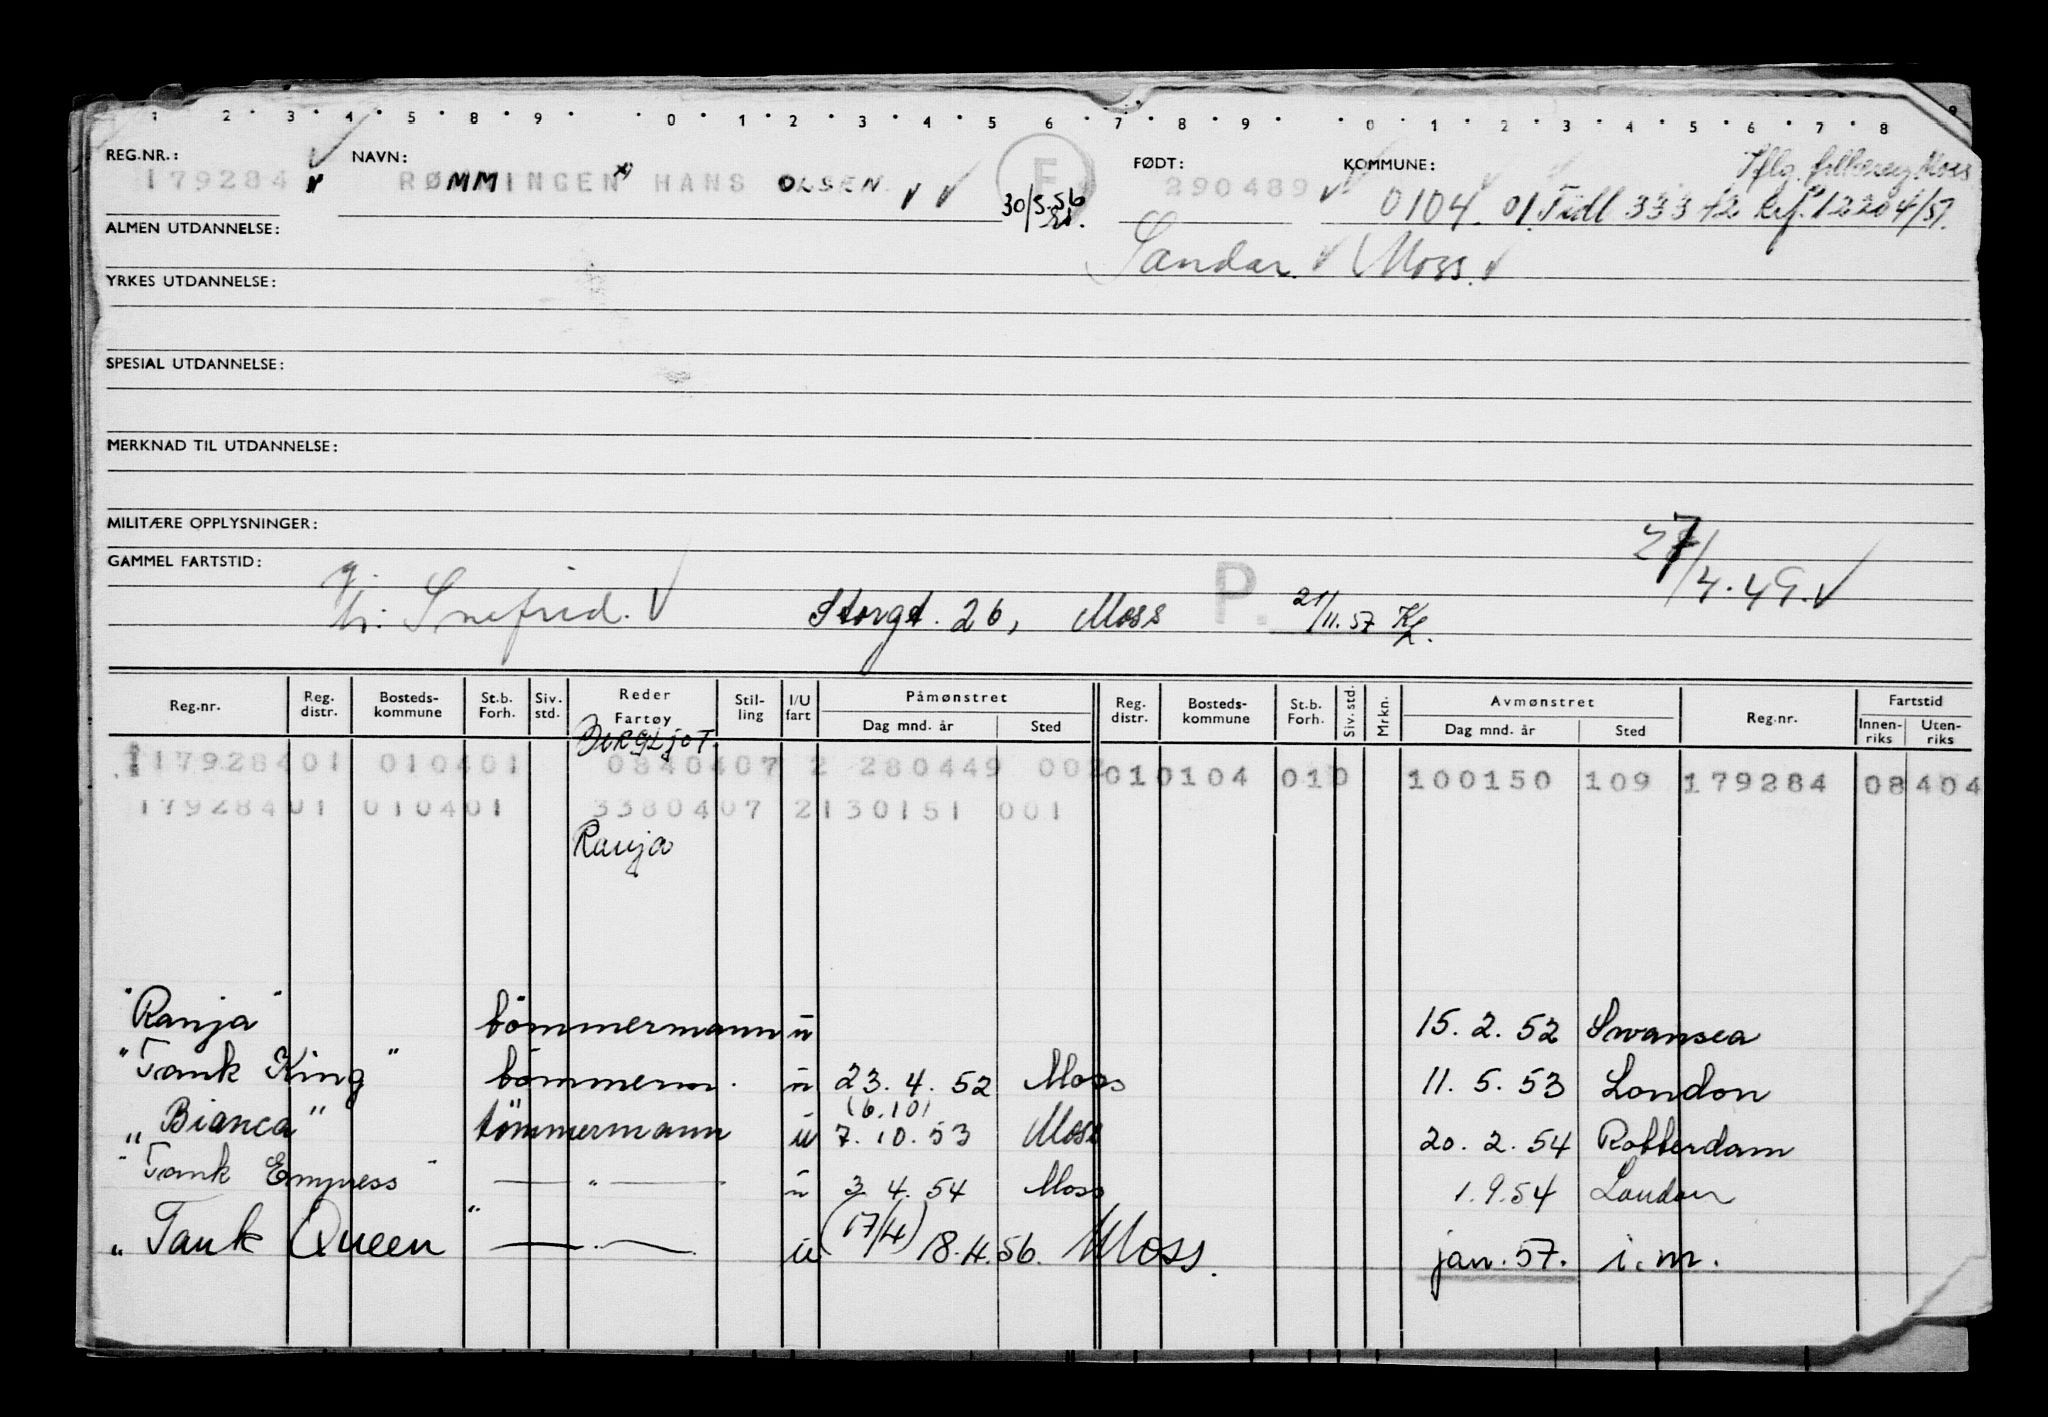 1 2 3 4 5 8 9 0 1 2 3 4 5 6 7 8 9 0 1 2 3 4 5 6 7 8 9
REG.NR.: NAVN: FØDT: KOMMUNE: Iflg. folkereg Moss
179284 RØMMINGEN x) HANS OLSEN F 290489 0104.01 Tidl 333 42 krf. 12204/57.
30/5.56
ALMEN UTDANNELSE: Sandar. Moss.
YRKES UTDANNELSE:
SPESIAL UTDANNELSE:
MERKNAD TIL UTDANNELSE:
MILITÆRE OPPLYSNINGER:
27/4.49.
GAMMEL FARTSTID:
h: Snefrid. Storgt. 26, Moss P. 21/11.57
Reg.nr. Reg. distr. Bosteds-kommune St.b. Forh. Siv. std. Reder Fartøy Stil-ling I/U fart Påmønstret Dag mnd. år Sted Reg. distr. Bosteds-kommune St.b. Forh. Siv. std. Mrkn. Avmønstret Dag mnd. år Sted Reg.nr. Fartstid Innen-riks Uten-riks
BERGLJOT.
17928401 010401 0840407 2 280449 002 010104 010 100150 109 179284 08404
17928401 010401 3380407 2130151 001
Ranja
"Ranja" tømmermann u 15.2.52 Swansea
"Tank King" tømmerm. u 23.4.52 Moss 11.5.53 London
(6.10)
"Bianca" tømmermann u 7.10.53 Moss 20.2.54 Rotterdam
"Tank Empress" — " — u 3.4.54 Moss 1.9.54 London
"Tank Queen" — " — u (17/4) 18.4.56. Moss. jan. 57. i.m.